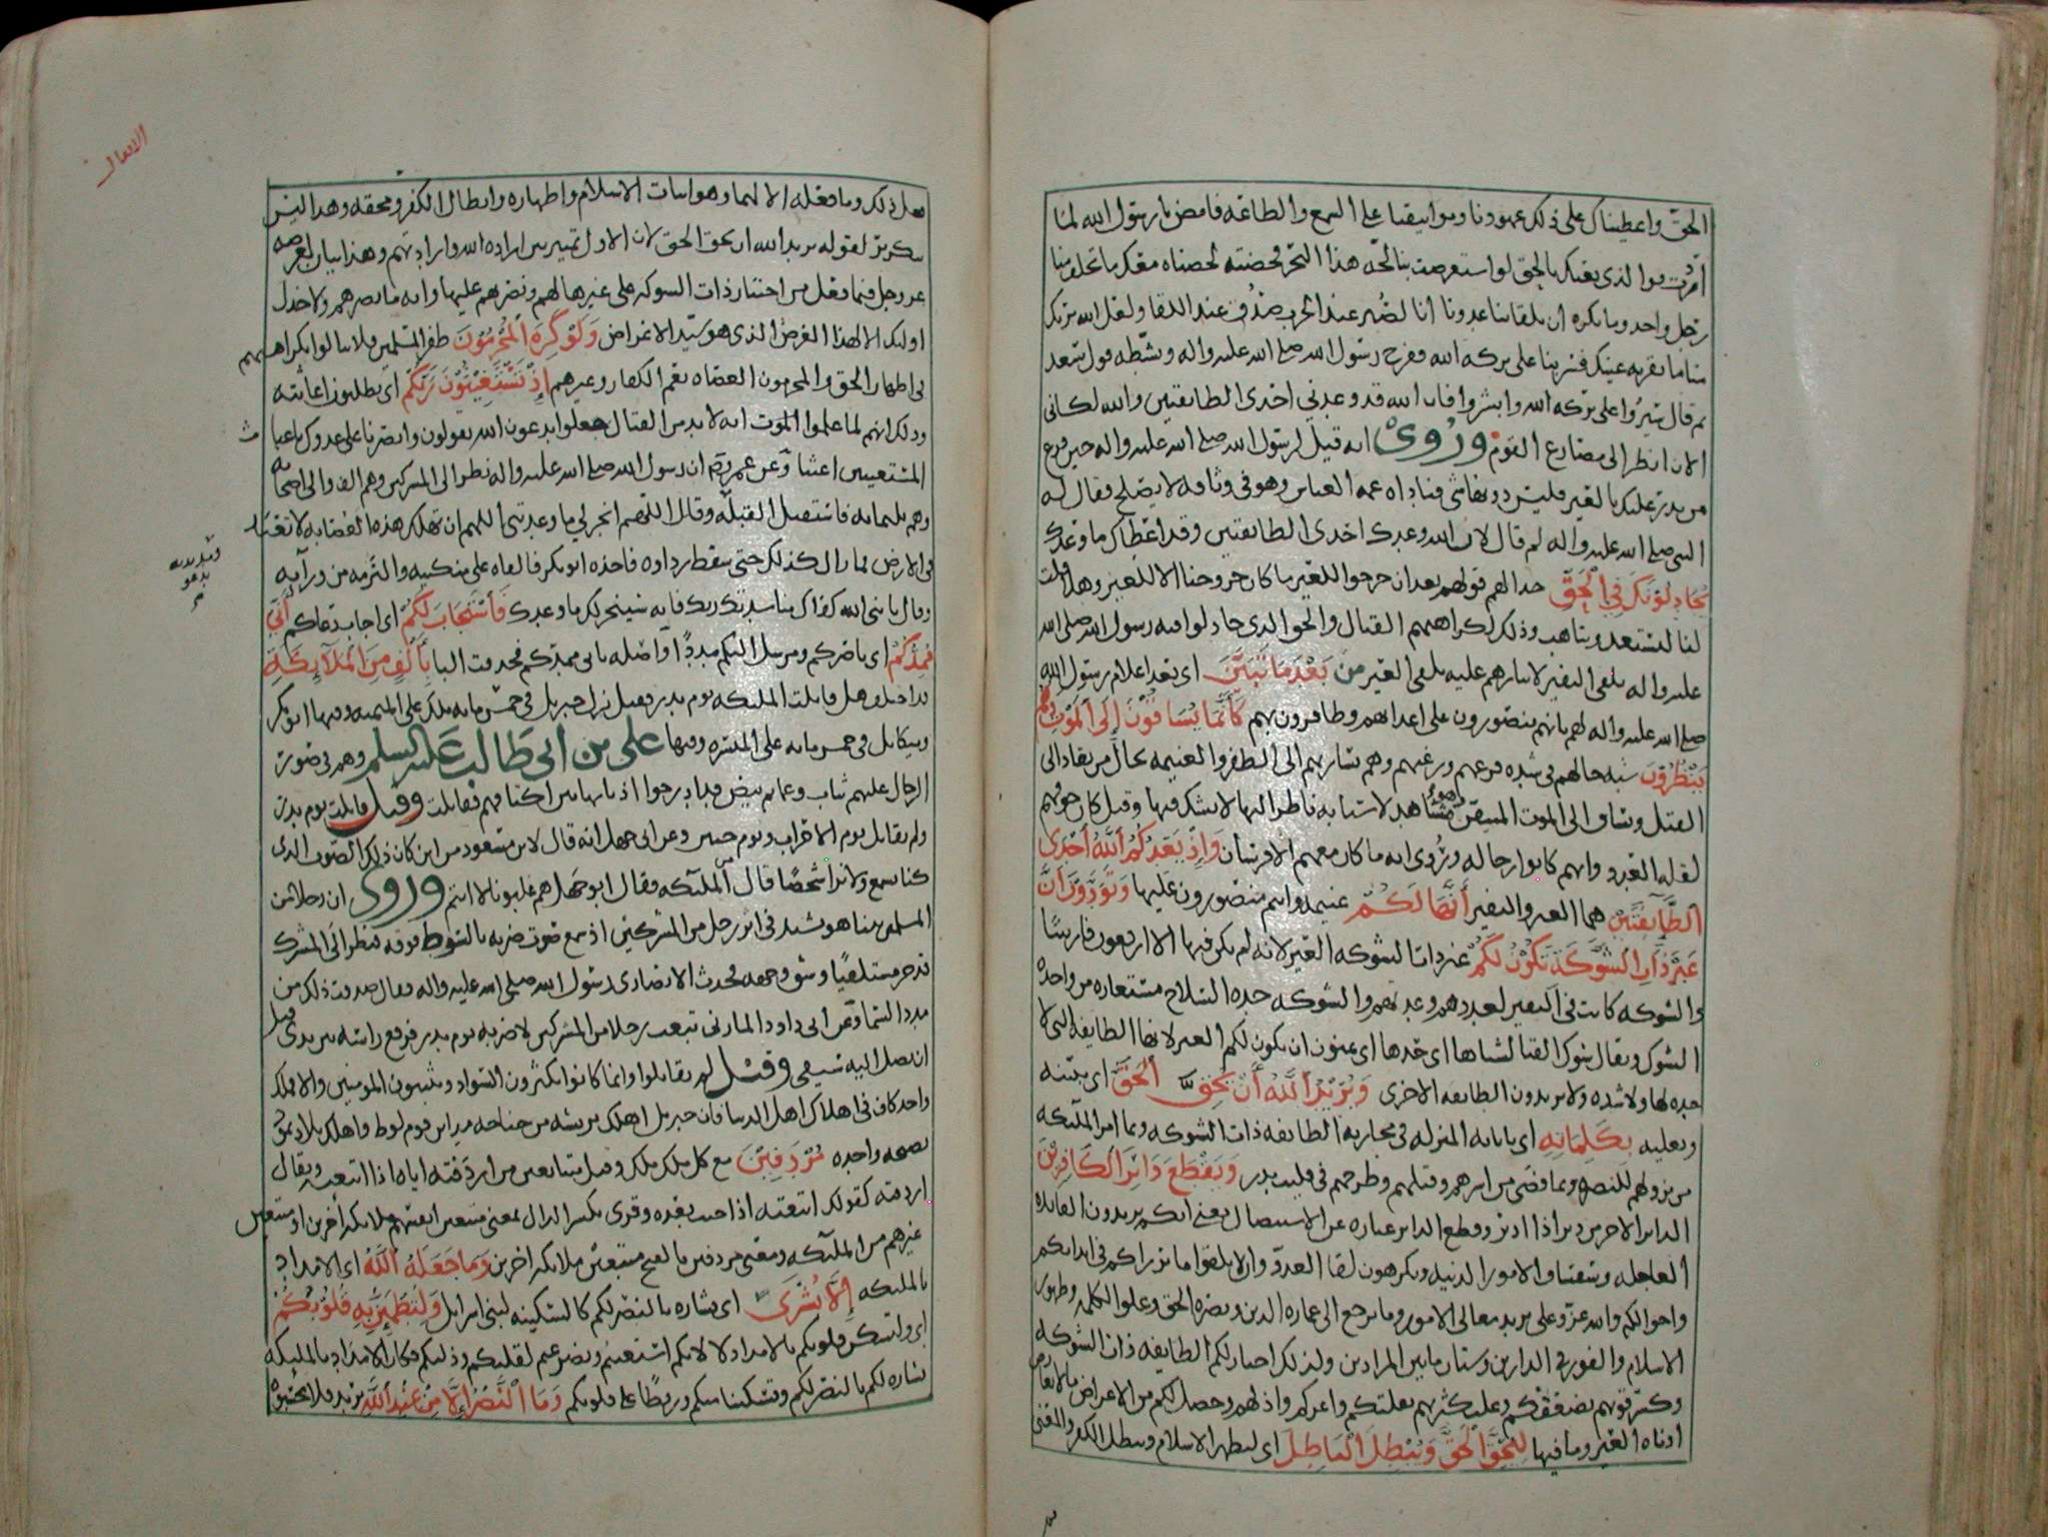 الحق واعطيناك على ذلك عهودنا ومواثيقنا على السمع والطاعه فامض يا رسول الله لما
امرت فوالذى بعثك بالحق لو استعرضت بنا لجه هذا البحر فخضته لخضناه معك ما تخلف منا
رجل واحد وما نكره ان يلقا بنا عدونا انا لصبر عند الحرب صدق عند اللقا ولعل الله يريك
منا ما تقر به عينك فسر بنا على بركه الله ففرح رسول الله صلى الله عليه واله ونشطه قول سعد
ثم قال سيروا على بركه الله وابشروا فان الله قد وعدني احدى الطايفتين والله لكانى
الان انظر الى مصارع القوم وروى انه قيل لرسول الله صلى الله عليه واله حين فرغ
من بدر عليك بالعير فليس دونها شى فناداه عمه العباس وهو فى وثاقه لا يصلح فقال له
النبى صلى الله عليه واله لم قال لان الله وعدك احدى الطايفتين وقد اعطاك ما وعدك
يجادلونك في الحق جدالهم قولهم بعد ان خرجوا للنفير ما كان خروجنا الا للعير وهلا قلت
لنا لنستعد ونتاهب وذلك لكراهتهم القتال والحق الذى جادلوا فيه رسول الله صلى الله
عليه واله تلقى النفير لايثارهم عليه تلقى العير من بعد ما تبين اى بعد اعلام رسول الله
صلى الله عليه واله لهم بانهم ينصرون على اعدائهم وظافرون بهم كانما يساقون الى الموت وهم
ينظرون شبه حالهم فى شده فزعهم ورعبهم وهم يسار بهم الى الظفر والغنيمه بحال من يقاد الى
القتل ويساق الى الموت المتيقن وهو مشاهد لاسبابه ناظر اليها لا يشك فيها وقيل كان خوفهم
لقله العدد وانهم كانوا رجاله وروى انه ما كان معهم الا فرسان واذ يعدكم الله احدى
الطآيفتين هما العير والنفير انها لكم غنيمه وانتم منصورون عليها وتودون ان
غير ذات الشوكة تكون لكم غير ذات الشوكه العير لانه لم يكن فيها الا اربعون فارسا
والشوكه كانت فى النفير لعددهم وعدتهم والشوكه حده السلاح مستعاره من واحده
الشوك ويقال شوك القنا لشباها اى حدها اى يتمنون ان يكون لكم العير لانها الطايفه التى لا
حده لها ولا شده ولا يريدون الطايفه الاخرى ويريد الله ان يحق الحق اى يثبته
ويعليه بكلماته اى باياته المنزله فى محاربه الطايفه ذات الشوكه وبما امر الملئكه
من نزولهم للنصره وبما قضى من اسرهم وقتلهم وطرحهم فى قليب بدر ويقطع دابر الكافرين
الدابر الاخر من دبر اذا ادبر وقطع الدابر عباره عن الاستيصال يعنى انكم يريدون الفايده
العاجله وسفساف الامور الدنيه ويكرهون لقا العدو وان لا يلقوا ما يرزاكم فى ابدانكم
واحوالكم والله عز وعلى يريد معالى الامور وما يرجع الى عماره الدين ونصره الحق وعلو الكلمه وظهور
الاسلام والفوز فى الدارين وشتان ما بين المرادين ولذلك اختار لكم الطايفه ذات الشوكه
وكسر قوتهم بضعفكم وغلب كثرتهم بقلتكم واعزكم واذلهم وحصل لكم من الاعراض ما لا يعارض
ادناه العير وما فيها ليحق الحق ويبطل الباطل اى ليظهر الاسلام ويبطل الكفر والمعنى
الانفال
فعل ذلك وما فعله الا لهما وهو اثبات الاسلام واظهاره وابطال الكفر ومحقه وهذا ليس
بتكرير لقوله يريد الله ان يحق الحق لان الاول تمييز بين اراده الله وارادتهم وهذا بيان لغرضه
عز وجل فيما فعل من اختيار ذات الشوكه على غيرها لهم ونصرهم عليها وانه ما نصرهم ولا خذل
اولئك الا لهذا الغرض الذى هو سيد الاغراض ولو كره المجرمون ظفر المسلمين فلا تبالوا بكراهتهم
فى اظهار الحق والمجرمون العصاه يعم الكفار وغيرهم اذ تستغيثون ربكم اى يطلبون اغاثته
وذلك انهم لما علموا الموت انه لا بد من القتال جعلوا يدعون الله يقولون وانصرنا على عدوك يا غياث
المستغيثين اغثنا وعن عمر رض ان رسول الله صلى الله عليه واله نظر الى المشركين وهم الف والى اصحابه
وهم ثلثمايه فاستقبل القبله وقال اللهم انجز لى ما وعدتنى اللهم ان تهلك هذه العصابه لا تعبد
فى الارض فما زال كذلك حتى سقط رداوه فاخذه ابو بكر فالقاه على منكبيه والتزمه من ورآيه
وقال يا نبى الله كفاك مناشدتك ربك فانه سينجز لك ما وعدك فاستجاب لكم اى اجاب دعاكم أنى
ممدكم اى ناصركم ومرسل اليكم مددا واصله بانى ممدكم فحذفت البا بألف من الملآيكة
تداخلو هل قاتلت الملئكه يوم بدر فقيل نزل جبريل فى خمس مايه ملك على الميمنه وفيها ابو بكر
وميكائل فى خمس مايه على الميسره وفيها على بن ابى طالب عليه السلم وهم فى صورة
الرجال عليهم ثياب وعمايم بيض قد ارخوا اذنابها بين اكتافهم فقاتلت وقيل قاتلت يوم بدر
ولم يقاتل يوم الاحزاب ويوم حنين وعن ابى جهل انه قال لابن مسعود من اين كان ذلك الصوت الذى
كنا نسمع ولا نرا شخصا قال الملئكه فقال ابو جهل هم غلبونا لا انتم وروى ان رجلا من
المسلمين بينا هو يشتد فى اثر رجل من المشركين اذ سمع صوت ضربه بالسوط فوقه فنظر الى المشرك
قد خر مستلقيا وشق وجهه فحدث الانصارى رسول الله صلى الله عليه واله فقال صدقت ذلك من
مدد السما وعن ابى داود المازنى تبعت رجلا من المشركين لاضربه يوم بدر فوقع راسه بين يدى قبل
ان يصل اليه سيفى وقيل لم يقاتلوا وانما كانوا يكثرون السواد ويثبتون المومنين والا فملك
واحد كاف فى اهلاك اهل الدنيا فان جبريل اهلك بريشه من جناحه مداين قوم لوط واهلك بلاد ثمود
بصيحه واحده مردفين مع كل ملك ملك وقيل متتابعين من اردفته اياه اذا اتبعته ويقال
اردفته كقولك اتبعته اذا جيت بعده وقرى بكسر الدال بمعنى متبعين انفسهم ملايكه اخرين او متبعين
غيرهم من الملئكه ومعنى مردفين بالفتح متبعين ملايكه اخرين وما جعله الله اى الامداد
بالملئكه الا بشرى اى بشاره بالنصر لكم كالسكينه لبنى اسرايل ولتطمئن به قلوبكم
اى ولتسكن قلوبكم بالامداد لا لانكم استغثتم وتضرعتم لقلتكم وذلتكم فكان الامداد بالملئكه
بشاره لكم بالنصر لكم وتسكينا منكم وربطا على قلوبكم وما النصر الا من عند الله يريد فلا تحسبوه